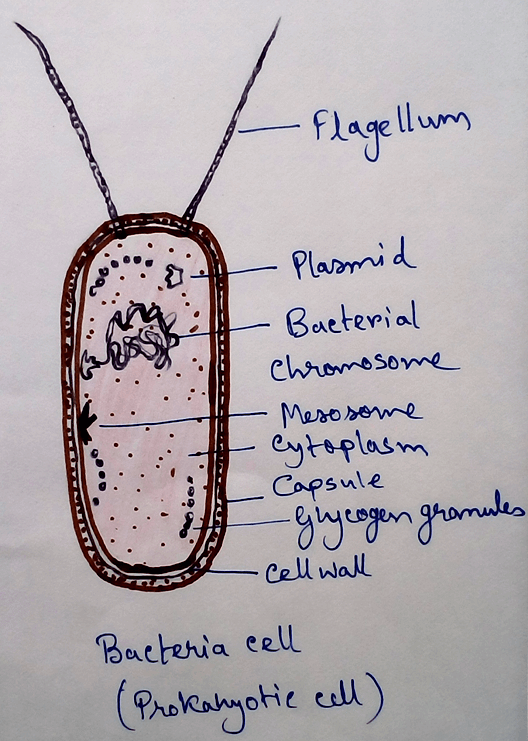 Flagellum
Plasmid
Bacterial
Chromosome
Mesosome
Cytoplasm
Capsule
Glycogen granules
Cell wall
Bacteria cell
(Prokaryotic cell)